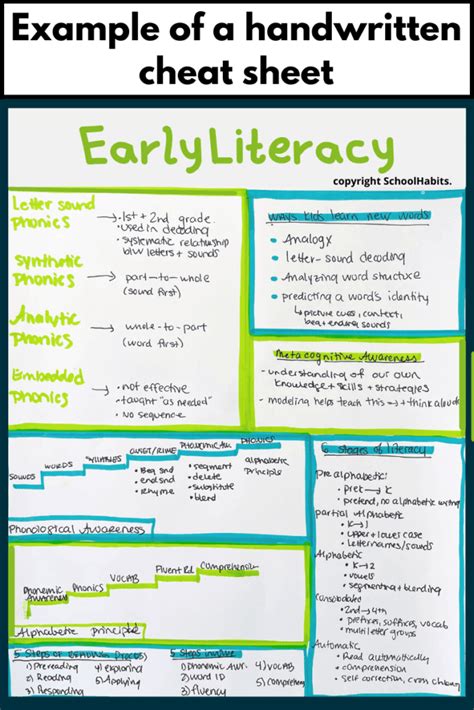 Example of a handwritten
cheat sheet
EarlyLiteracy
copyright SchoolHabits.
Letter sound
phonics
→ • 1st + 2nd grade.
• used in decoding
• systematic relationship
b/w letters + sounds
Synthetic
Phonics
→ part-to-whole
(sound first)
Analytic
Phonics
→ whole-to-part
(word first)
Embedded
Phonics
→ • not effective
• taught "as needed"
• No sequence
Ways kids learn new words
• Analogy
• letter-sound decoding
• Analyzing word structure
• predicting a word's identity
↳ picture cues, context,
beg + ending sounds
Metacognitive Awareness
- understanding of our own
knowledge + skills + strategies
- modeling helps teach this → + think alouds
SOUNDS
WORDS
SYLLABLES
ONSET/RIME
PHONEMIC AW.
PHONICS
• Beg snd
• end snd
• Rhyme
• segment
• delete
• substitute
• blend
alphabetic
Principle
Phonological Awareness
Phonemic
Awareness
Phonics
VOCAB
Fluent Rd
Comprehension
Alphabetic principle
6 stages of literacy
Pre alphabetic:
• prek → K
• pretend, no alphabetic writing
partial Alphabetic
• K → 1
• upper + lower case
• letter names/sounds
Alphabetic
• K → 2
• vowels
• segmenting + blending
Consolidated
• 2nd → 4th
• prefixes, suffixes, vocab
• multi letter groups
Automatic
• Read automatically
• comprehension
• self correction, cross checking
5 Steps of Reading Process
1) Prereading
2) Reading
3) Responding
4) exploring
5) Applying
5 Steps
1) Phonemic Awr.
2) word ID
3) fluency
4) vocab
5) comprehen